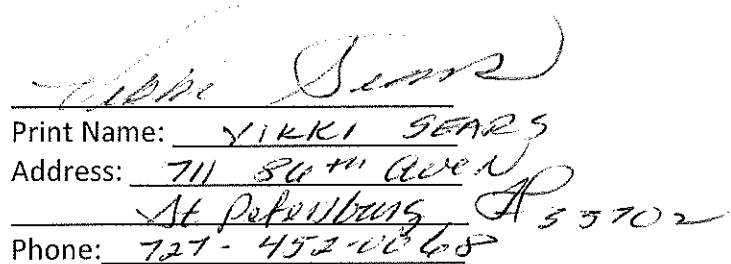 Vikki Sears
Print Name: VIKKI SEARS
Address: 711 86th Ave N
St Petersburg 33702
Phone: 727-452-0068